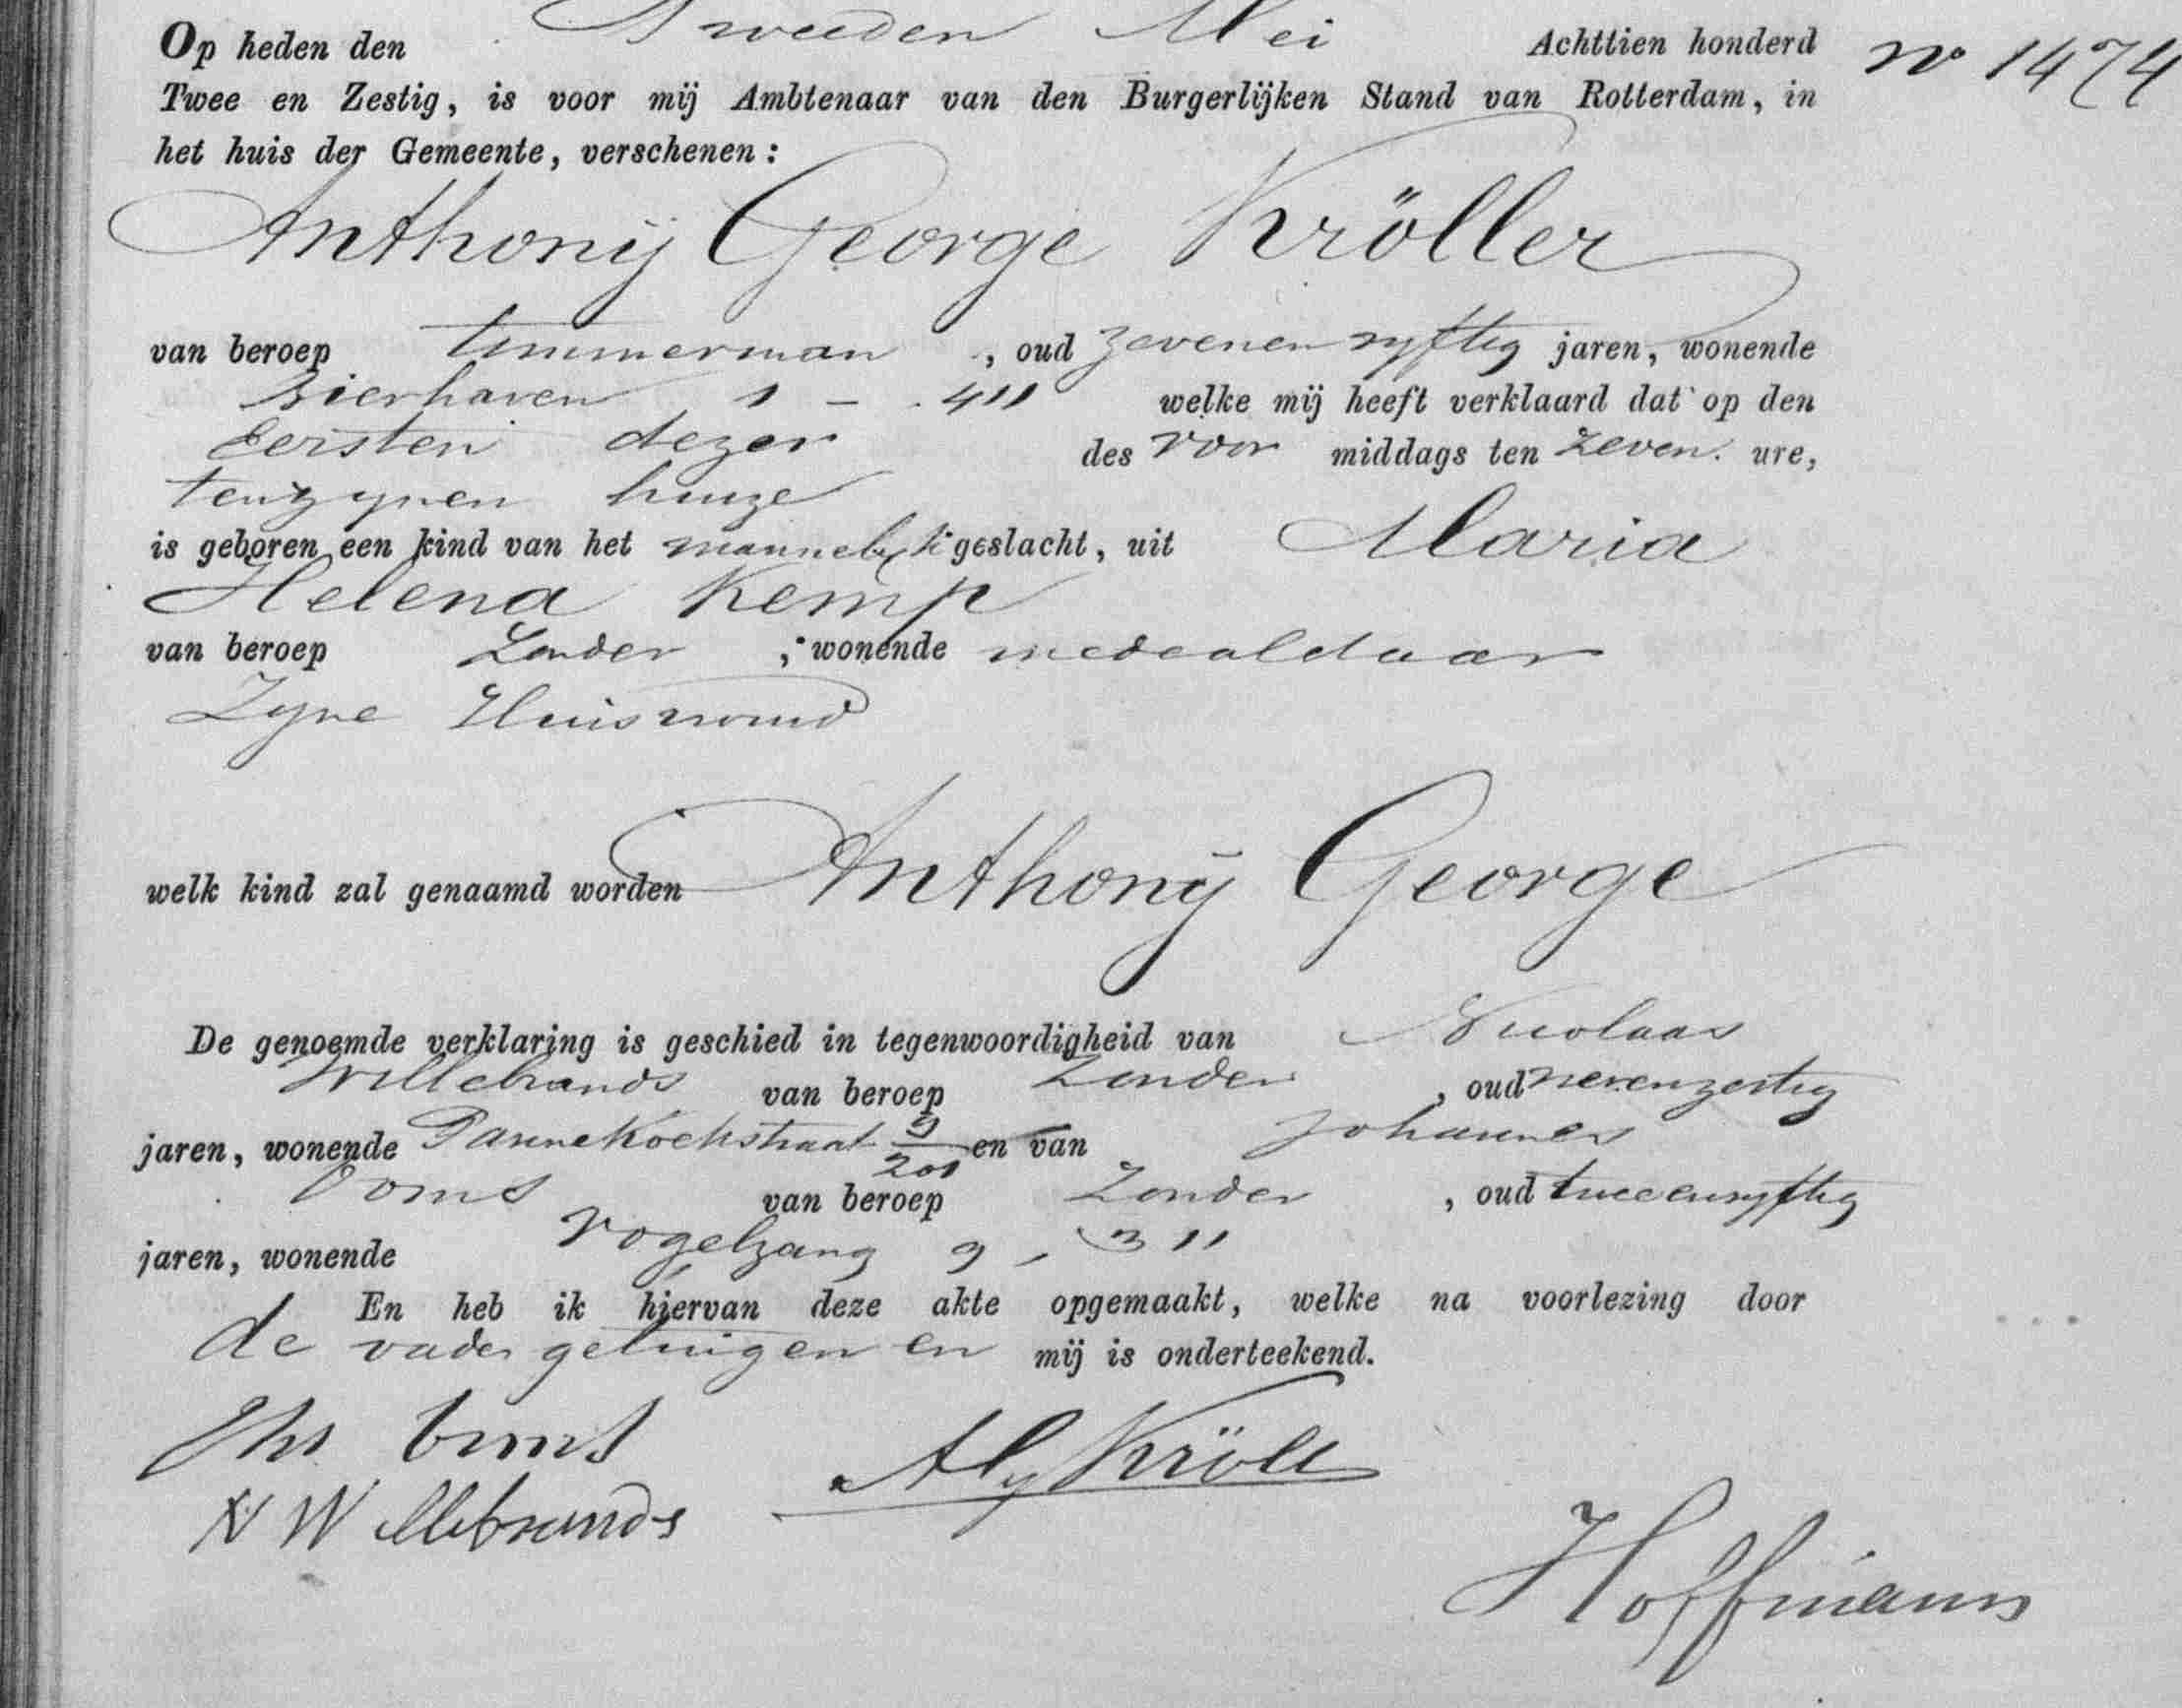 Op heden den Tweeden Mei Achttien honderd
No 1474
Twee en Zestig, is voor mij Ambtenaar van den Burgerlijken Stand van Rotterdam, in
het huis der Gemeente, verschenen:
Anthonij George Kröller
van beroep timmerman, oud zevenenvyftig jaren, wonende
Bierhaven 1 - 411 welke mij heeft verklaard dat op den
Eersten dezer des voor middags ten zeven ure,
tenzynen huize
is geboren een kind van het mannelyk geslacht, uit Maria
Helena Kemp
van beroep Zonder, wonende medealdaar
Zyne Huisvrouw
welk kind zal genaamd worden Anthonij George
De genoemde verklaring is geschied in tegenwoordigheid van Nicolaas
Willebrands van beroep Zonder, oud zestig
jaren, wonende Pannekoekstraat 9/201 en van Johannes
Ooms van beroep Zonder, oud tweeenvyftig
jaren, wonende Vogelzang 9, 311
En heb ik hiervan deze akte opgemaakt, welke na voorlezing door
de vader getuigen en mij is onderteekend.
Jhs Ooms
Kröll
N Willebrands
Hoffmann